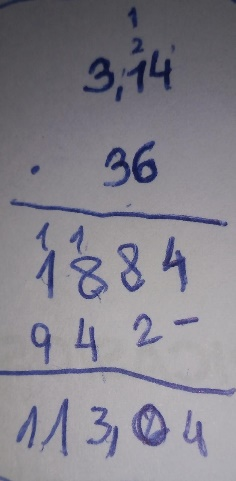 1
2
3,14
· 36
1 1
1884
942-
113,04